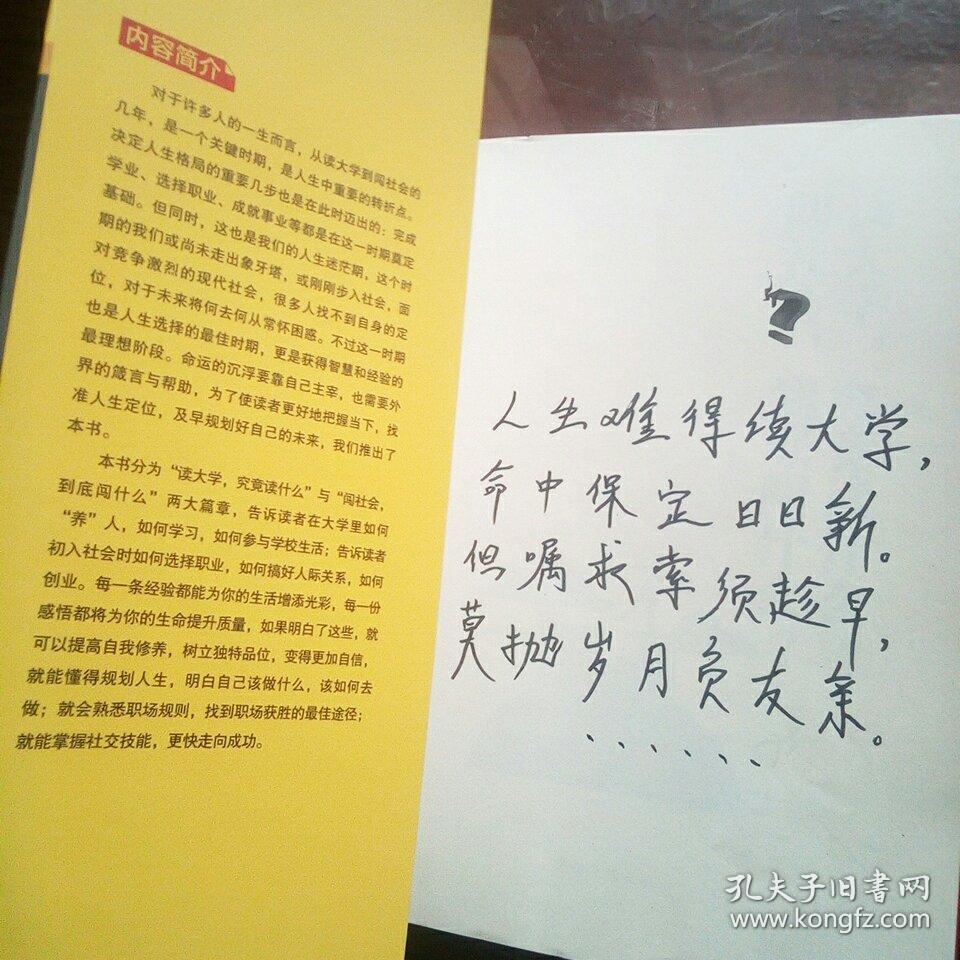 内容简介
对于许多人的一生而言，从读大学到闯社会的
几年，是一个关键时期，是人生中重要的转折点。
决定人生格局的重要几步也是在此时迈出的：完成
学业、选择职业、成就事业等都是在这一时期奠定
基础。但同时，这也是我们的人生迷茫期，这个时
期的我们或尚未走出象牙塔，或刚刚步入社会，面
对竞争激烈的现代社会，很多人找不到自身的定
位，对于未来将何去何从常怀困惑。不过这一时期
也是人生选择的最佳时期，更是获得智慧和经验的
最理想阶段。命运的沉浮要靠自己主宰，也需要外
界的箴言与帮助，为了使读者更好地把握当下，找
准人生定位，及早规划好自己的未来，我们推出了
本书。
本书分为“读大学，究竟读什么”与“闯社会，
到底闯什么”两大篇章，告诉读者在大学里如何
“养”人，如何学习，如何参与学校生活；告诉读者
初入社会时如何选择职业，如何搞好人际关系，如何
创业。每一条经验都能为你的生活增添光彩，每一份
感悟都将为你的生命提升质量，如果明白了这些，就
可以提高自我修养，树立独特品位，变得更加自信，
就能懂得规划人生，明白自己该做什么，该如何去
做；就会熟悉职场规则，找到职场获胜的最佳途径；
就能掌握社交技能，更快走向成功。
人生难得续大学，
命中保定日日新。
但嘱求索须趁早，
莫抛岁月负友亲。
......
孔夫子旧书网
www.kongfz.com